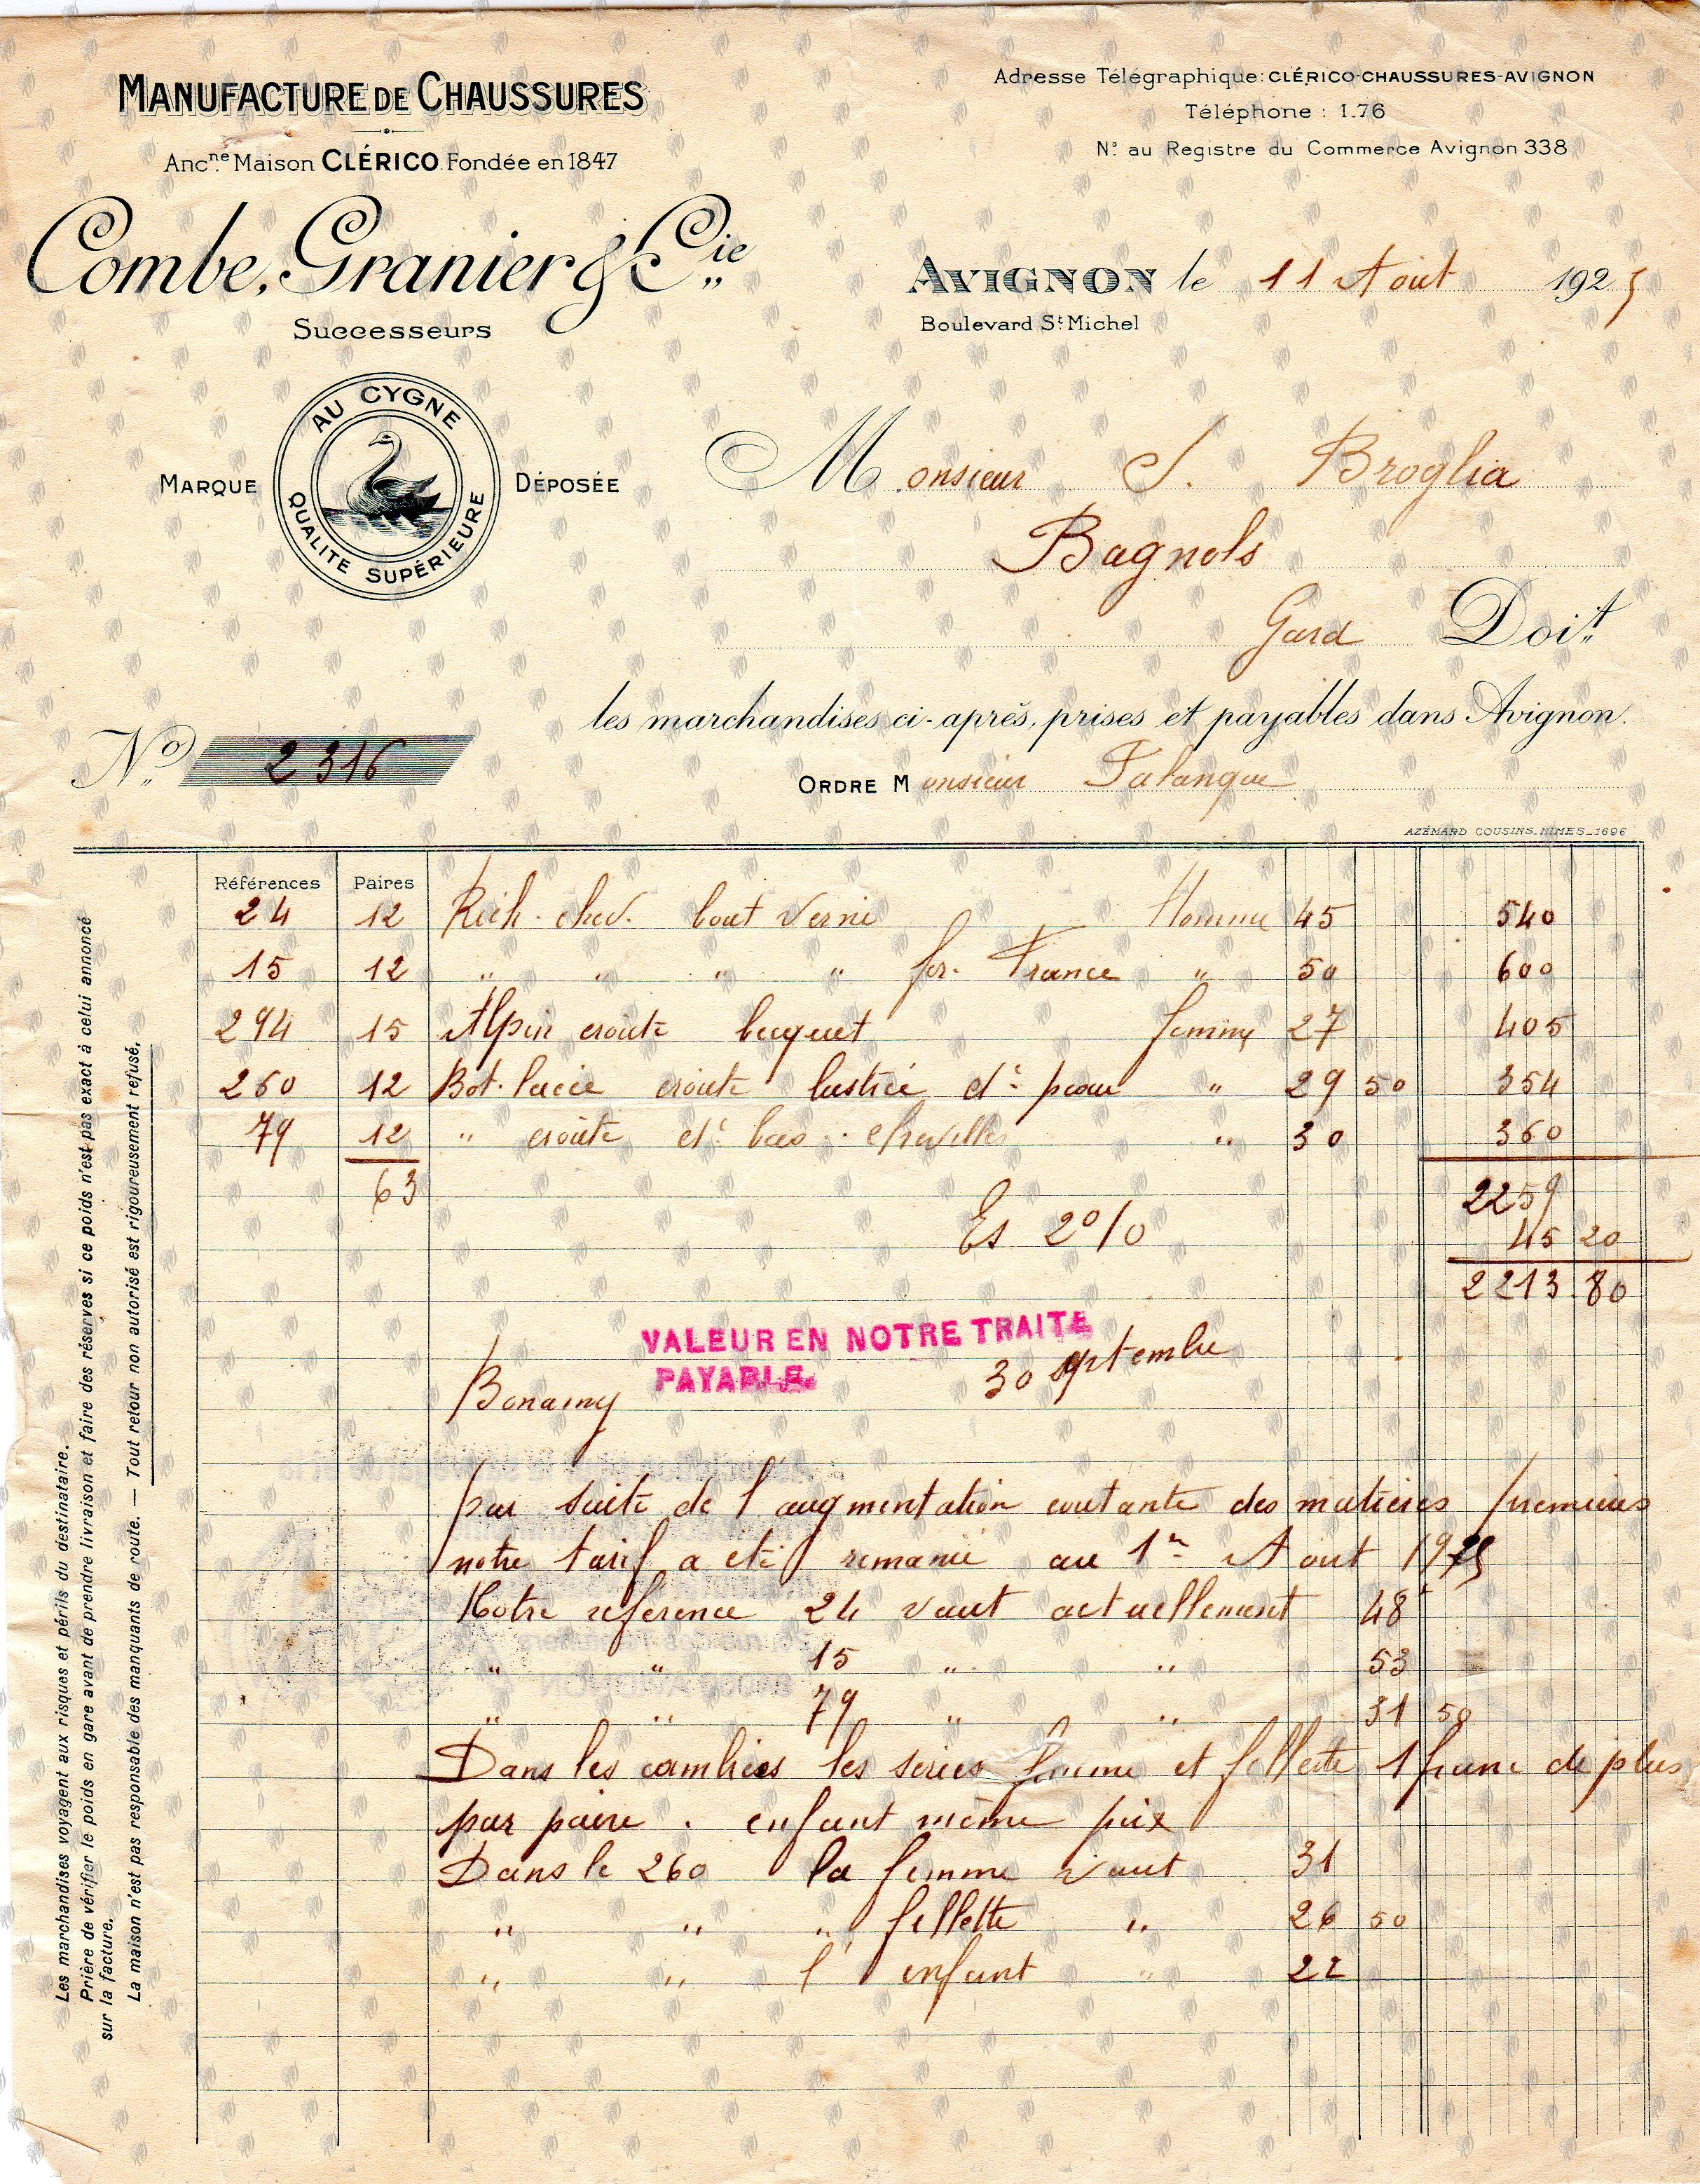 MANUFACTURE DE CHAUSSURES
Ancne Maison CLÉRICO Fondée en 1847
Combe, Granier & Cie
Successeurs
MARQUE AU CYGNE QUALITE SUPÉRIEURE DÉPOSÉE
Adresse Télégraphique: CLÉRICO-CHAUSSURES-AVIGNON
Téléphone : 1.76
N° au Registre du Commerce Avignon 338
AVIGNON le 11 Aout 1925
Boulevard St Michel
Monsieur J. Broglia
Bagnols
Gard Doit
les marchandises ci-après, prises et payables dans Avignon.
No 2316
ORDRE Monsieur Palanque
AZÉMARD COUSINS. NIMES_1696
Références Paires
24 12 Rich. chev. bout verni Homme 45 540
15 12 " " " " for. France " 50 600
294 15 Alpin croute becquet femme 27 405
260 12 Bot. lacée croute lustrée dt peau " 29 50 354
79 12 " croute dt bas. chevilles " 30 360
63 2259
Es 2% 45 20
2213 80
VALEUR EN NOTRE TRAITE
PAYABLE 30 septembre
Bonamy
par suite de l'augmentation des matieres premieres
notre tarif a eté remanié au 1er Aout 1925
Notre reference 24 vaut actuellement 48
" " 15 " " 53
" " 79 " " 31 50
Dans les cambrées les series femme et fillette 1 franc de plus
par paire . enfant même prix
Dans le 260 la femme vaut 31
" " " fillette " 26 50
" " l'enfant " 22
Les marchandises voyagent aux risques et périls du destinataire.
Prière de vérifier le poids en gare avant de prendre livraison et faire des réserves si ce poids n'est pas exact à celui annoncé
sur la facture.
La maison n'est pas responsable des manquants de route. — Tout retour non autorisé est rigoureusement refusé,